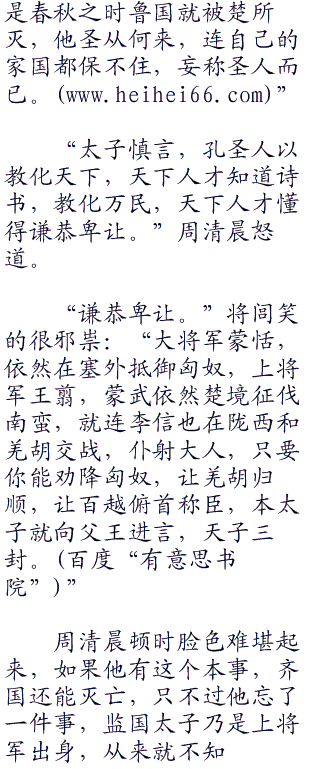 是春秋之时鲁国就被楚所
灭，他圣从何来，连自己的
家国都保不住，妄称圣人而
已。(www.heihei66.com)”
“太子慎言，孔圣人以
教化天下，天下人才知道诗
书，教化万民，天下人才懂
得谦恭卑让。”周清晨怒
道。
“谦恭卑让。”将闾笑
的很邪祟：“大将军蒙恬，
依然在塞外抵御匈奴，上将
军王翦，蒙武依然楚境征伐
南蛮，就连李信也在陇西和
羌胡交战，仆射大人，只要
你能劝降匈奴，让羌胡归
顺，让百越俯首称臣，本太
子就向父王进言，天子三
封。(百度“有意思书
院”)”
周清晨顿时脸色难堪起
来，如果他有这个本事，齐
国还能灭亡，只不过他忘了
一件事，监国太子乃是上将
军出身，从来就不知